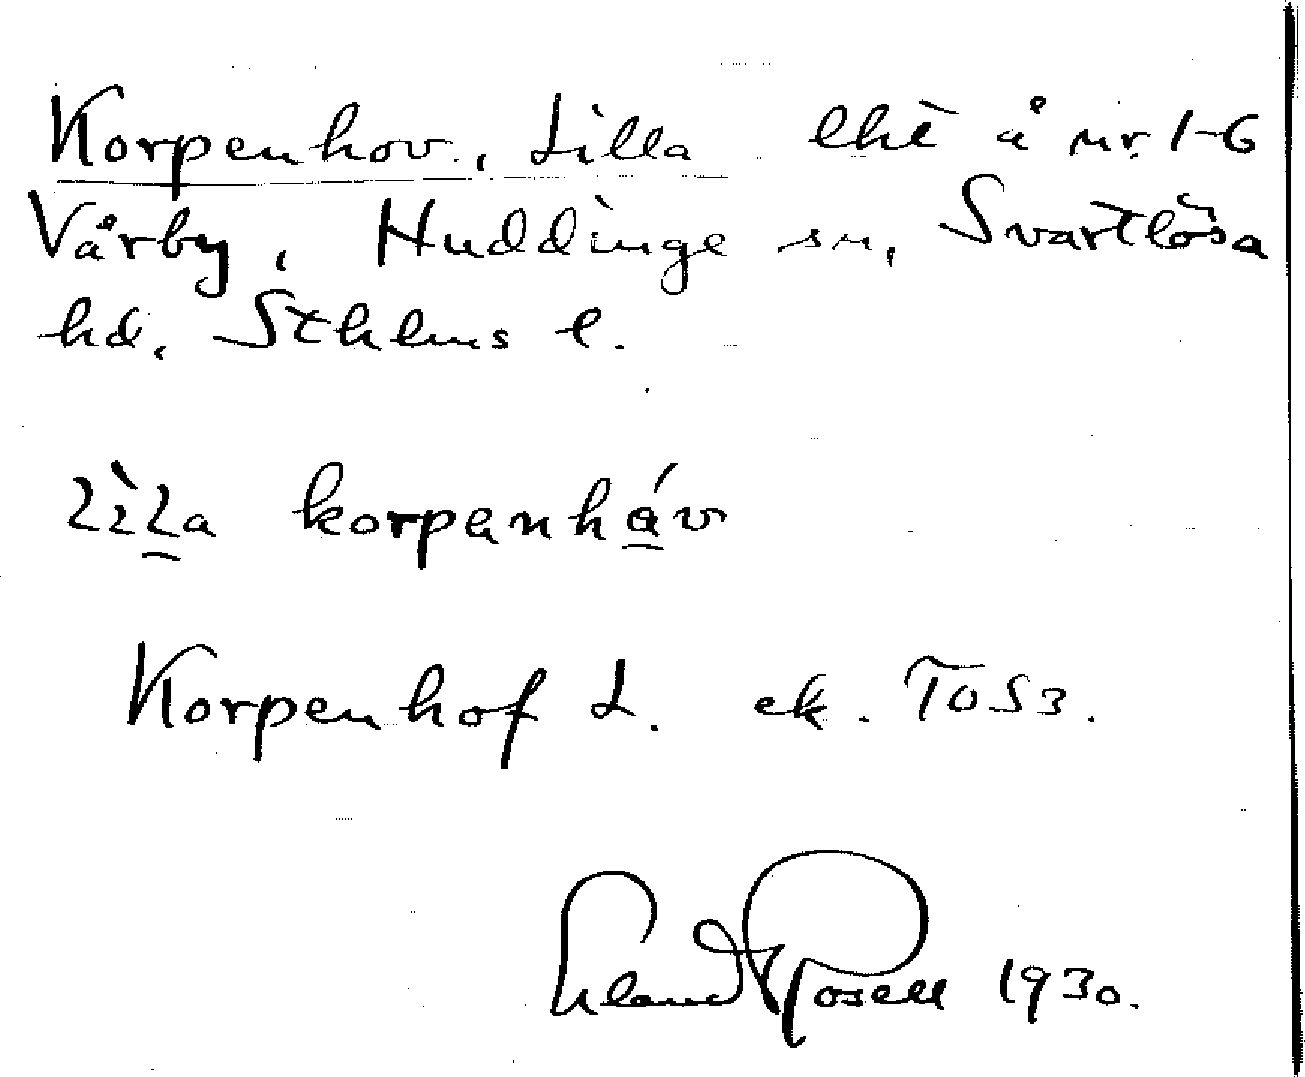 Korpenhov, Lilla lht å nr. 1-6
Vårby, Huddinge sn, Svartlösa
hd. Sthlms l.
korpanháv
Korpenhof L. ek. TOS3.
Erland Rosell 1930.